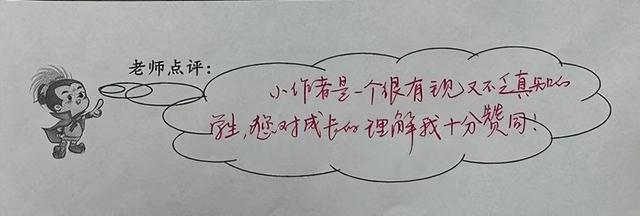 老师点评:
小作者是一个很有主见又不乏真知的
学生,您对成长的理解我十分赞同!